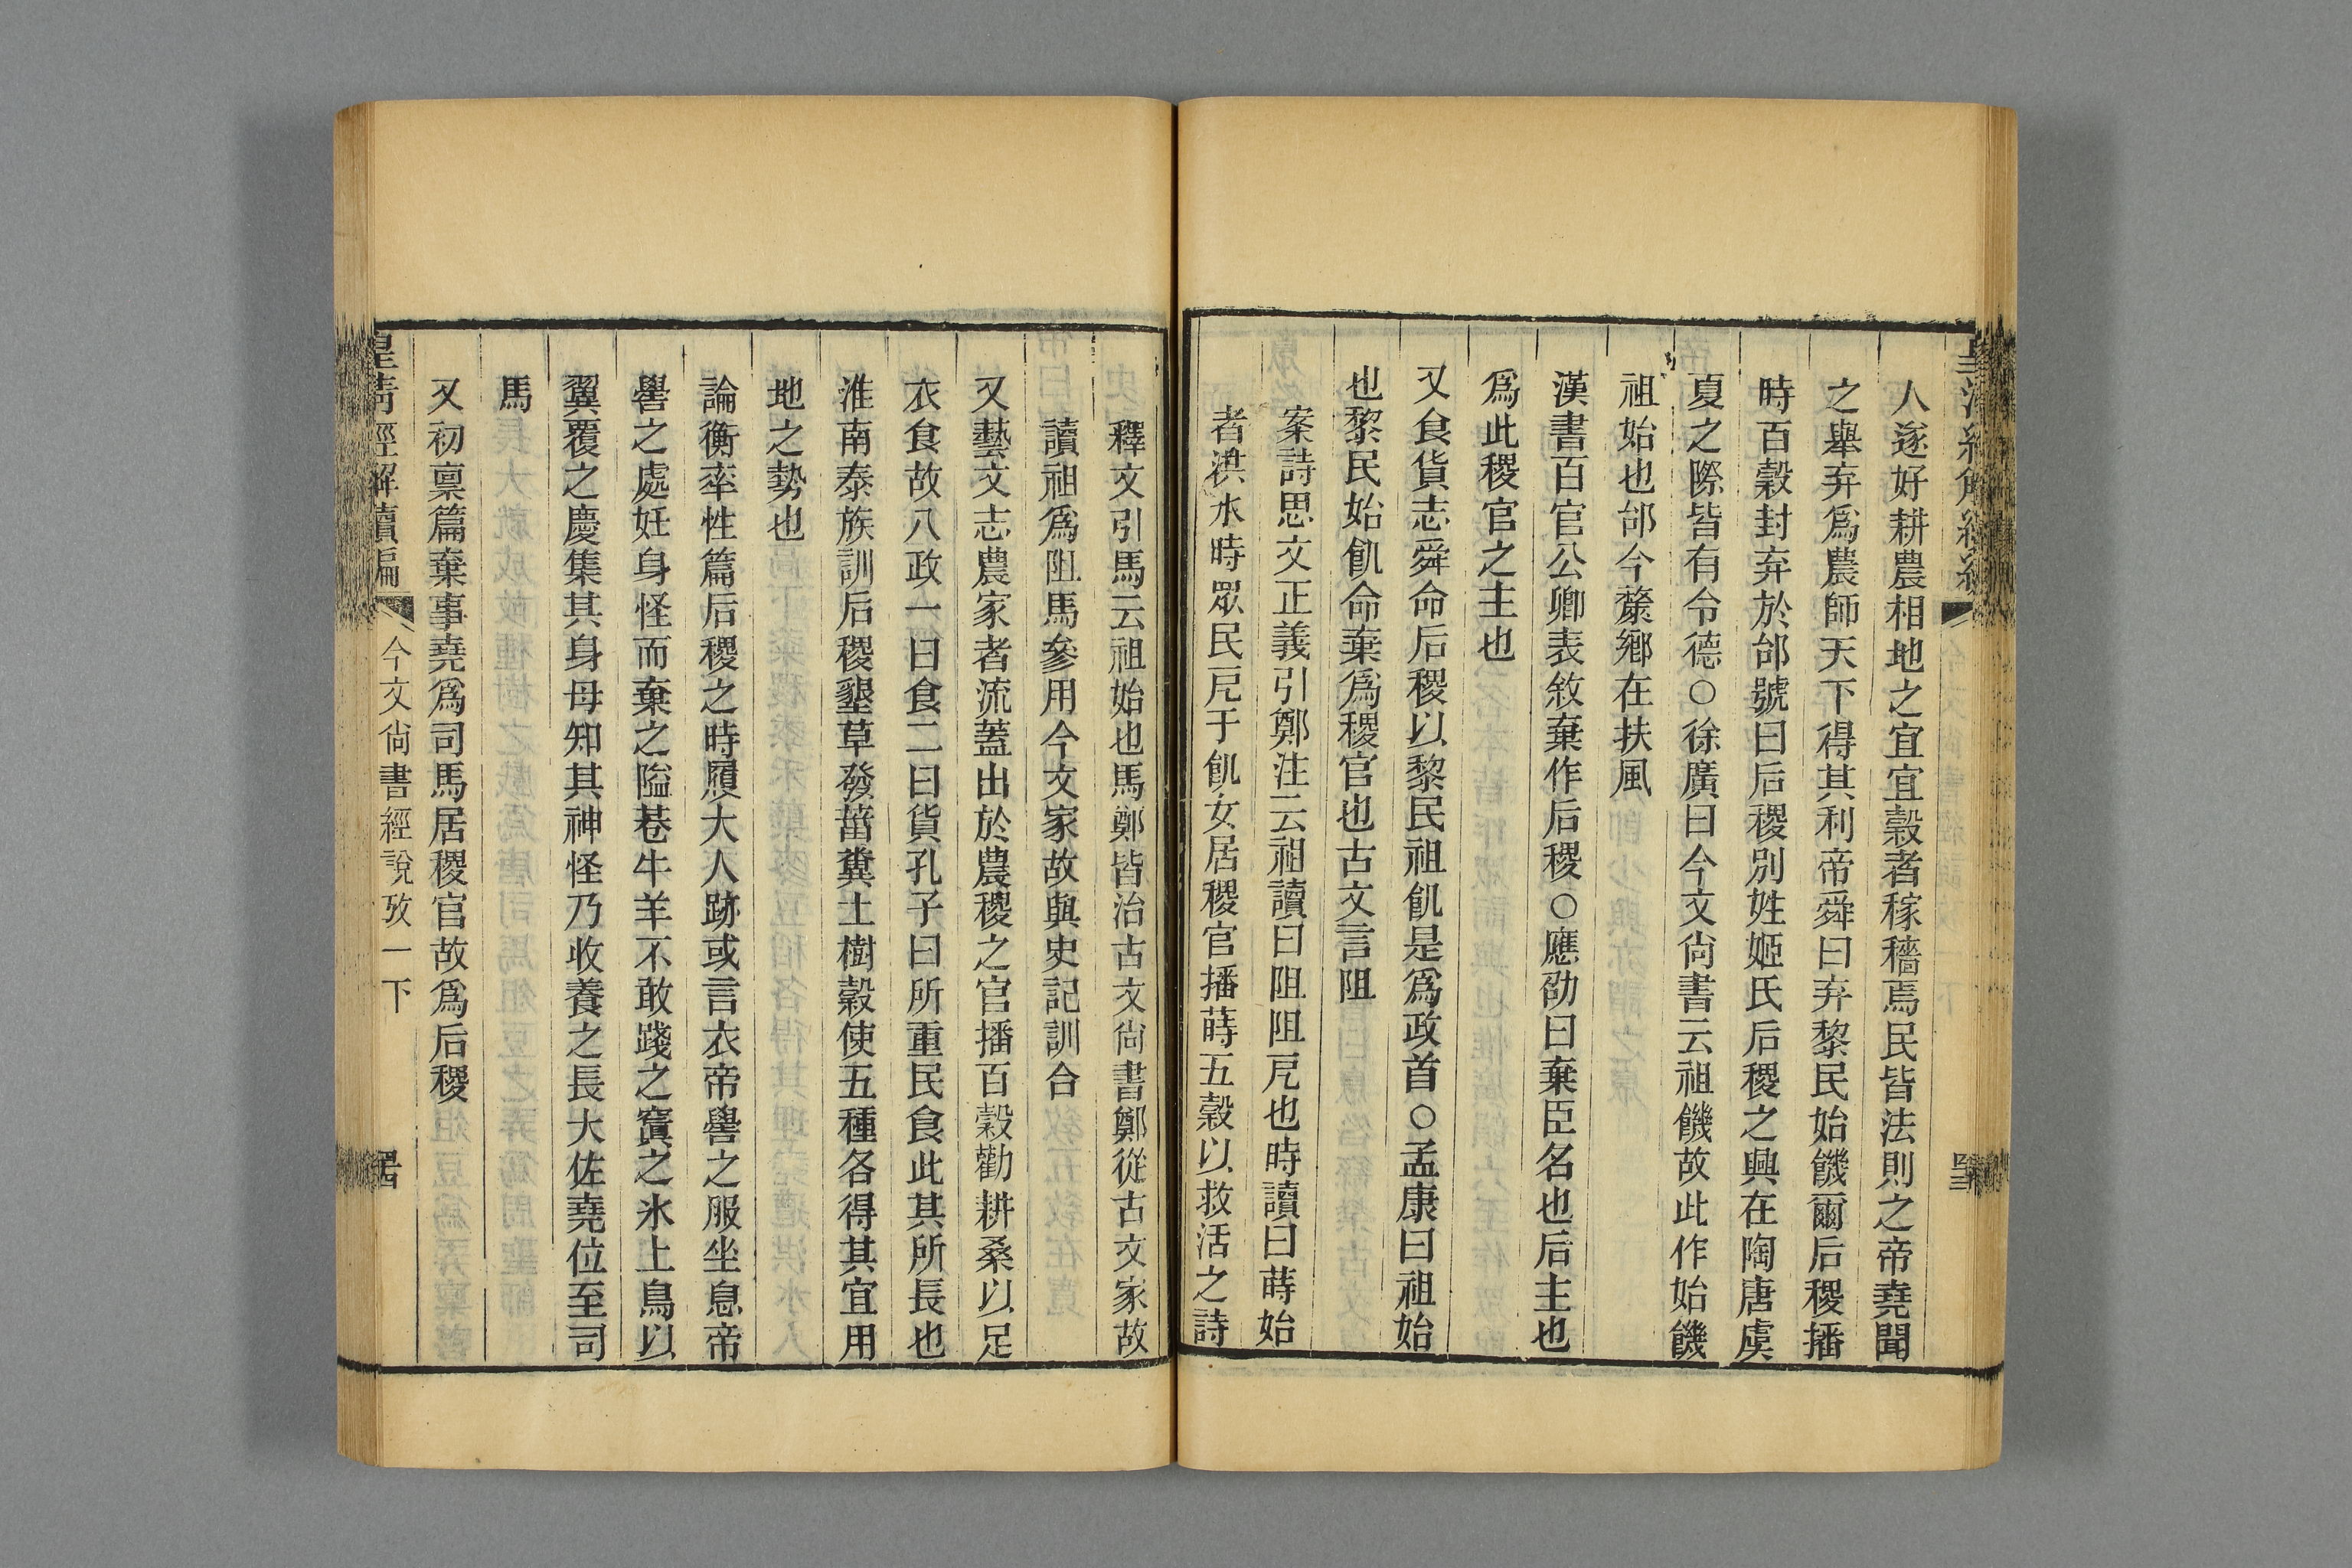 人遂好耕農相地之宜宜穀者稼穡焉民皆法則之帝堯聞
之舉弃爲農師天下得其利帝舜曰弃黎民始饑爾后稷播
時百穀封弃於邰號曰后稷別姓姬氏后稷之興在陶唐虞
夏之際皆有令德○徐廣曰今文尙書云祖饑故此作始饑
祖始也邰今斄鄉在扶風
漢書百官公卿表敘棄作后稷○應劭曰棄臣名也后主也
爲此稷官之主也
又食貨志舜命后稷以黎民祖飢是爲政首○孟康曰祖始
也黎民始飢命棄爲稷官也古文言阻
案詩思文正義引鄭注云祖讀曰阻阻戹也時讀曰蒔始
者洪水時眾民戹于飢女居稷官播蒔五穀以救活之詩
釋文引馬云祖始也馬鄭皆治古文尙書鄭從古文家故
讀祖爲阻馬參用今文家故與史記訓合
又藝文志農家者流蓋出於農稷之官播百穀勸耕桑以足
衣食故八政一曰食二曰貨孔子曰所重民食此其所長也
淮南泰族訓后稷墾草發菑糞土樹穀使五種各得其宜用
地之勢也
論衡率性篇后稷之時履大人跡或言衣帝嚳之服坐息帝
嚳之處妊身怪而棄之隘巷牛羊不敢踐之寘之氷上鳥以
翼覆之慶集其身母知其神怪乃收養之長大佐堯位至司
馬
又初稟篇棄事堯爲司馬居稷官故爲后稷
皇清經解續編
今文尙書經說攷一下